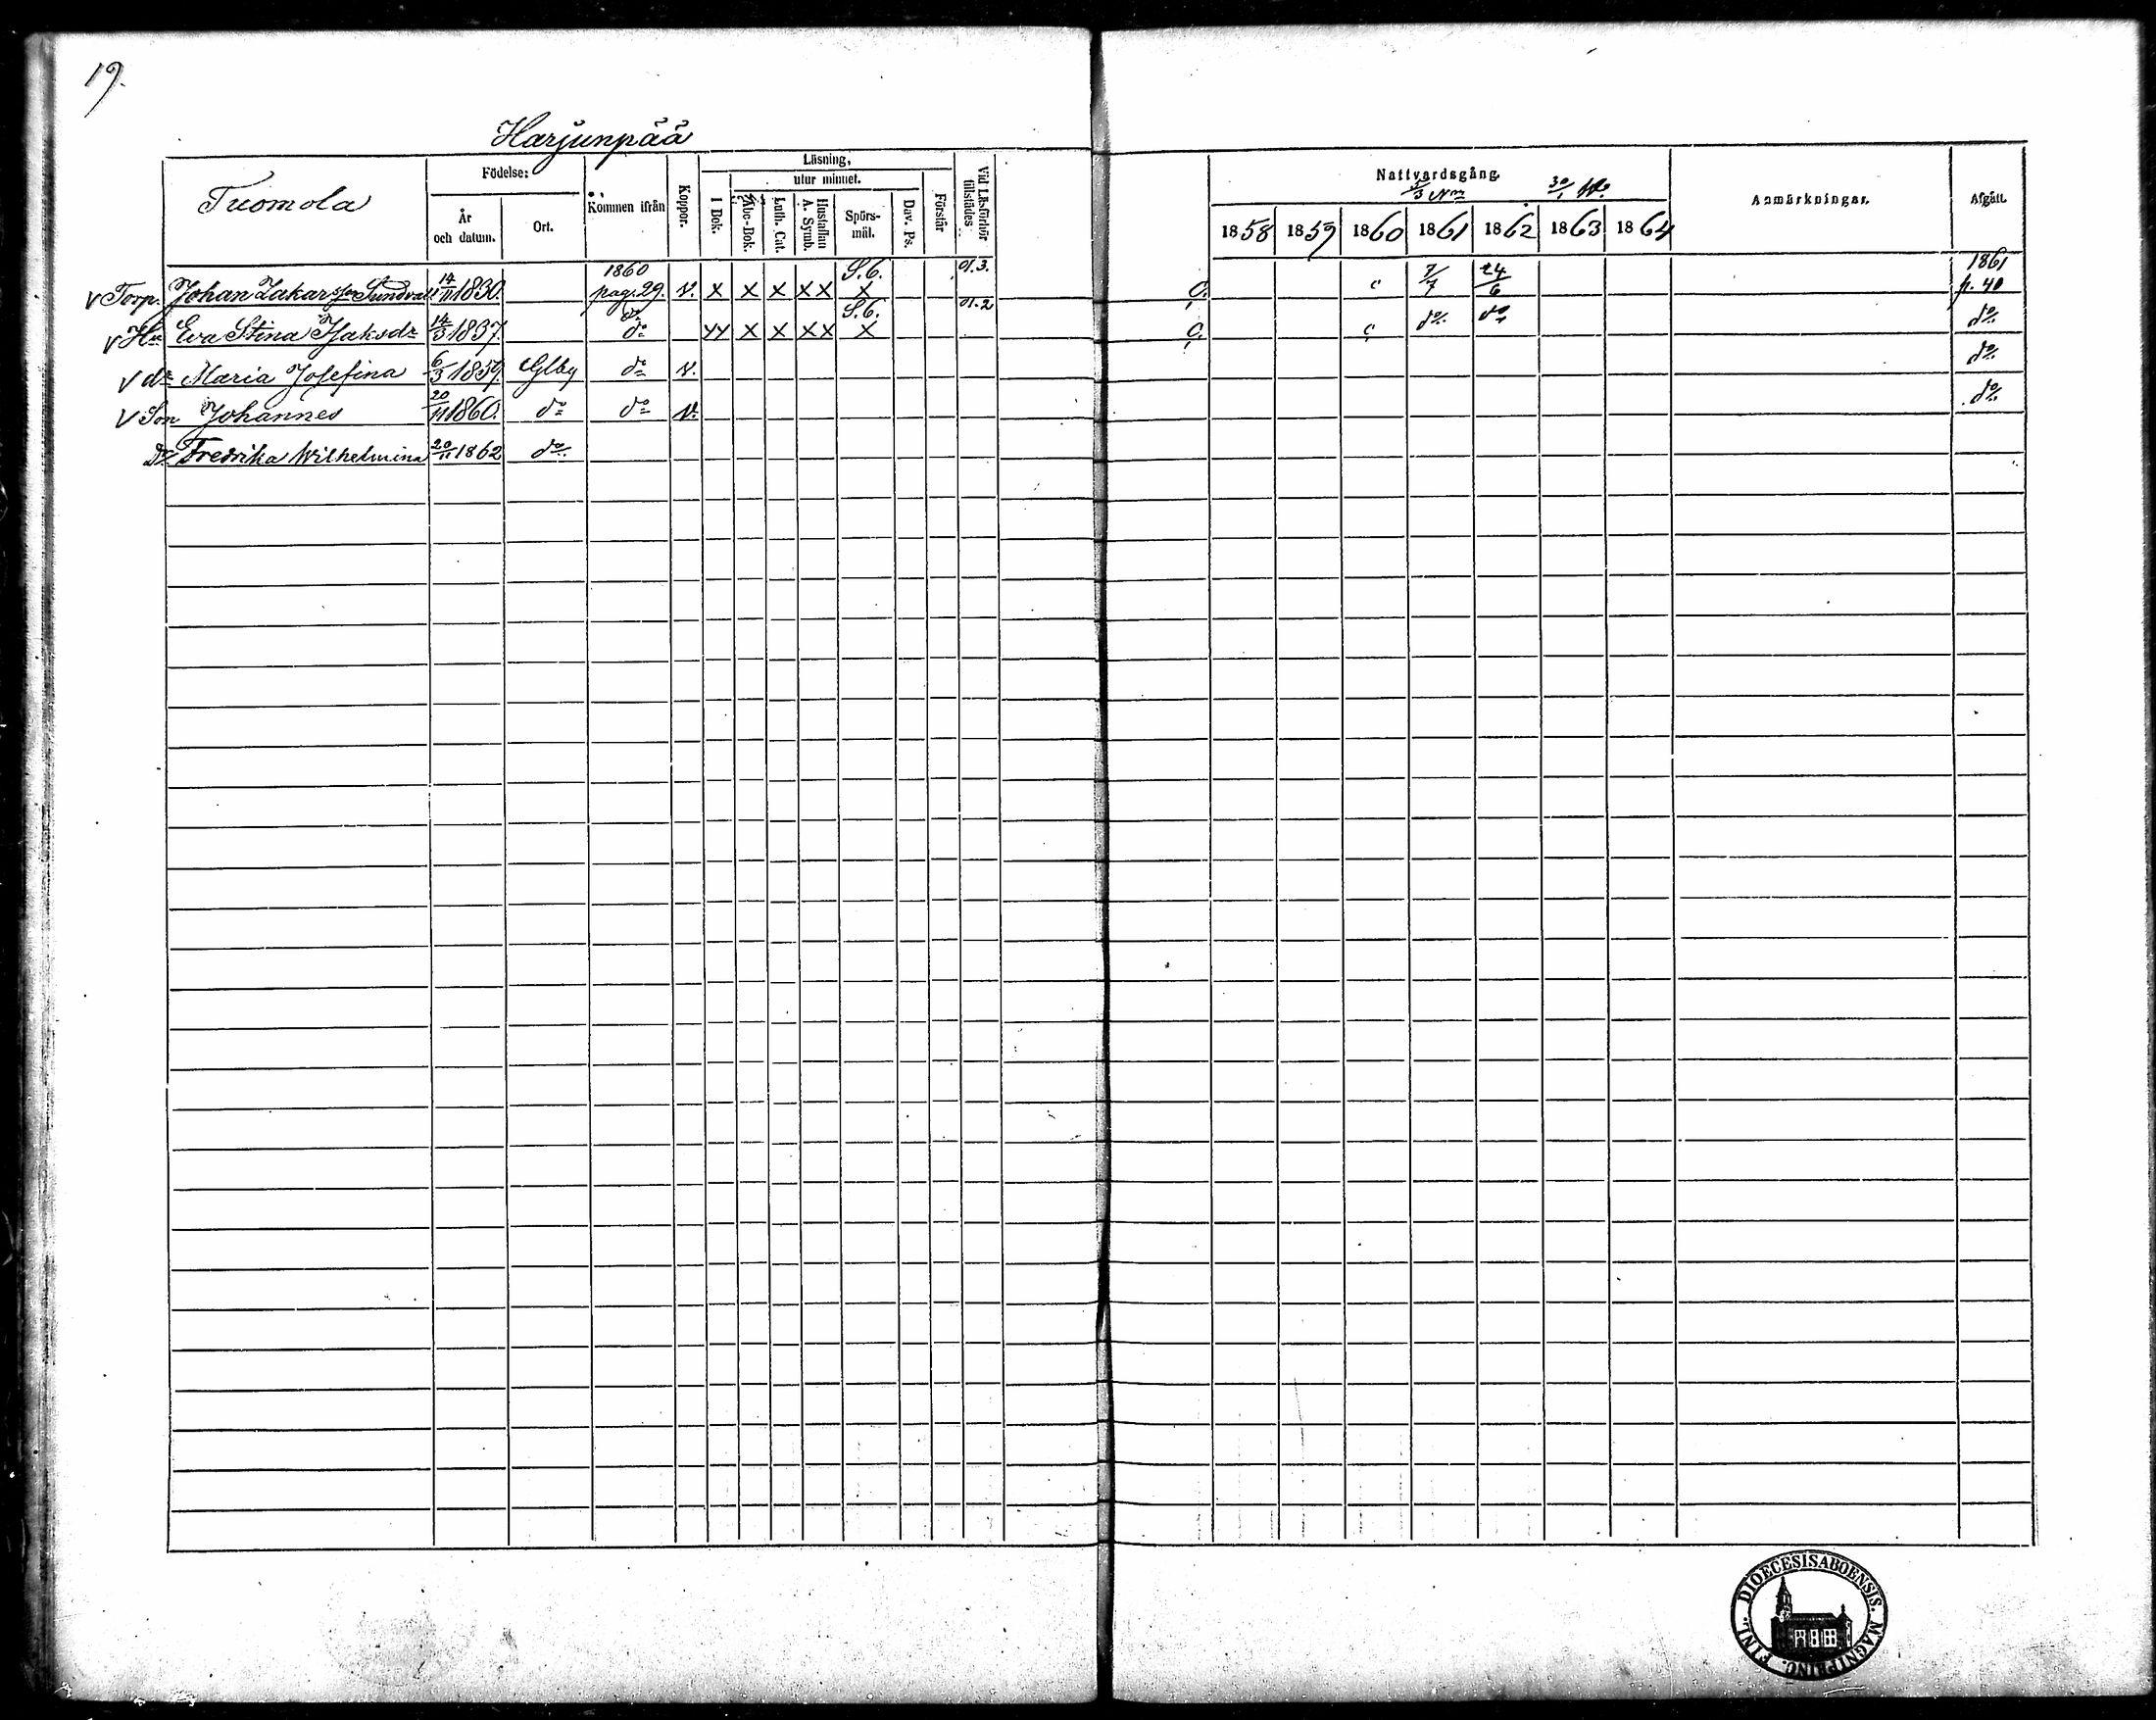 19.
Harjunpää
Tuomola
Födelse:
År och datum.
Ort.
Kommen ifrån
Koppor.
Läsning,
utur minnet.
I Bok.
Abc-Bok.
Luth. Cat.
Hustaflan A. Symb.
Spörsmål.
Dav. Ps.
Förstår
Vid Läsförhör tillstädes
Nattvardsgång.
1858 1859 1860 1861 1862 1863 1864
Anmärkningar.
Afgått.
v Torp. Johan Zakarsson Sundvall 14/11 1830. 1860 pag. 29. v. x x x x x S.6. x 01.3. 7/7 24/6 1861 p. 40
v Hu Eva Stina Isaksdr 14/3 1837. do x x x x x S.6. x 01.2 do do do
v dr Maria Josefina 6/3 1859. Glby do v. do
v Son Johannes 20/11 1860. do do v. do
Dr Fredrika Wilhelmina 20/11 1862 do
DIOECESIS ABOENSIS. MAGNI PRINC. FINL.